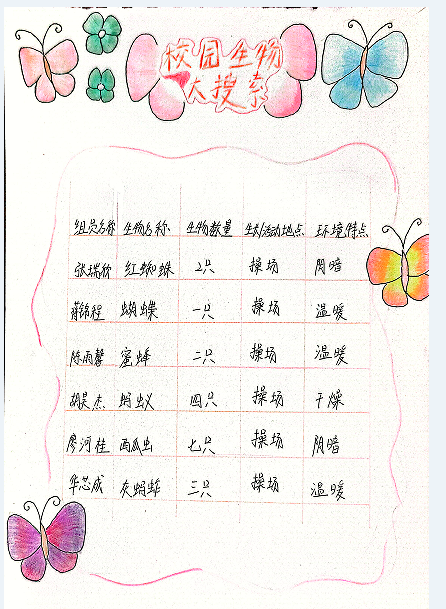 校园生物
大搜索
组员名称 生物名称 生物数量 生物活动地点 环境特点
张瑞欣 红蜘蛛 2只 操场 阴暗
蒋锦程 蝴蝶 一只 操场 温暖
陈雨馨 蜜蜂 二只 操场 温暖
胡昊杰 蚂蚁 四只 操场 干燥
廖河桂 西瓜虫 七只 操场 阴暗
华芯成 灰蚂蚱 三只 操场 温暖